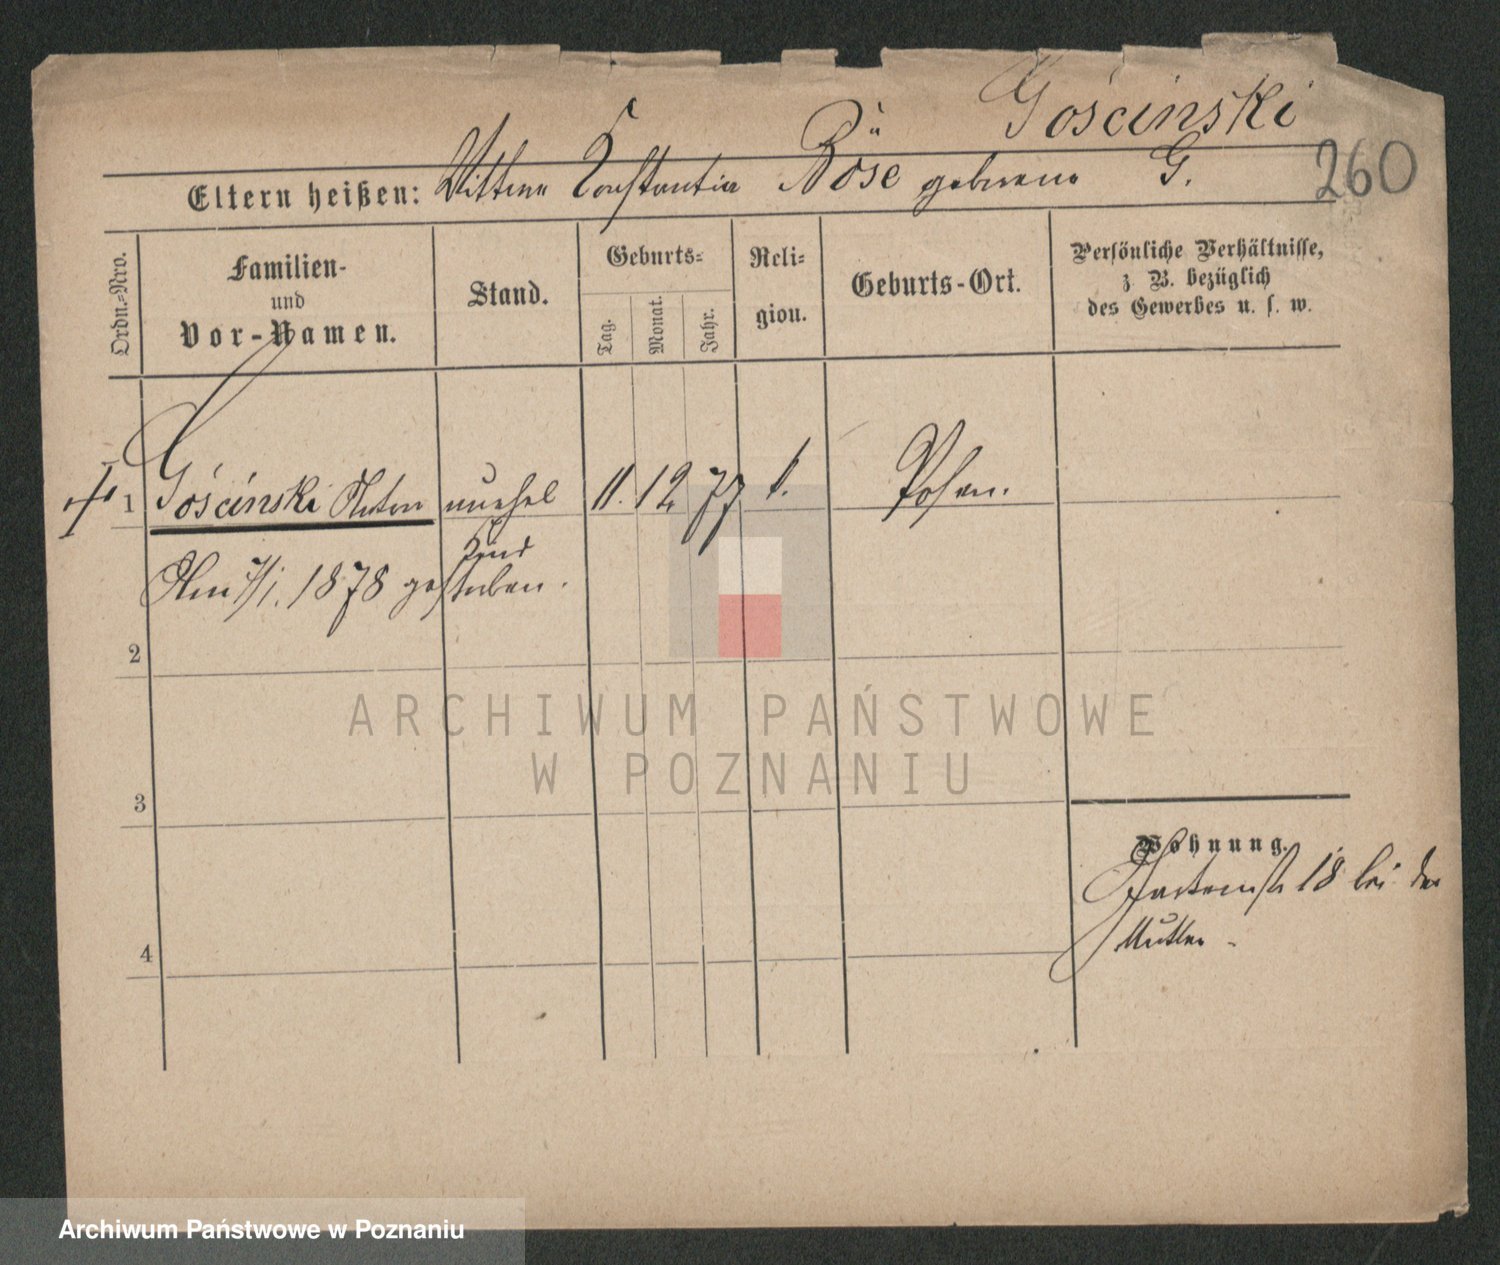 Gościnski
260
Eltern heißen: Wittwe Constantia Böse geborene G.
Ordn.=Nro.
Familien-
und
Vor-Namen.
Stand.
Geburts=
Tag.
Monat.
Jahr.
Reli=
gion.
Geburts-Ort.
Persönliche Verhältnisse,
z. B. bezüglich
des Gewerbes u. s. w.
1 Gościnski Anton unehel 11. 12 77 k. Posen.
Kind
Am 7/1. 1878 gestorben.
2
3
4
Wohnung.
Gartenstr 18 bei der
Mutter
ARCHIWUM PAŃSTWOWE
W POZNANIU
Archiwum Państwowe w Poznaniu